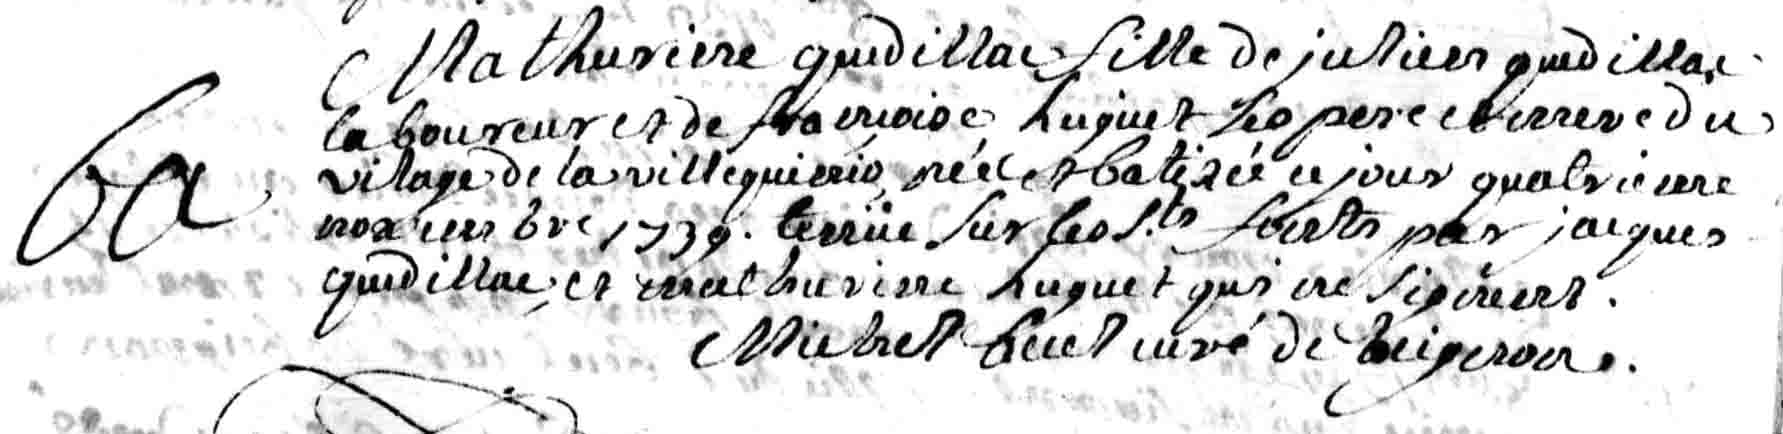 Mathurine quedillac fille de julien quedillac
ba laboureur et de francoise huguet ses pere et mere du
vilage de la villequienio, née et batizée ce jour quatrieme
novembre 1739. tenüe sur les S.ts fonts par jacques
quedillac, et mathurine huguet qui ne signent.
Michel huet curé de